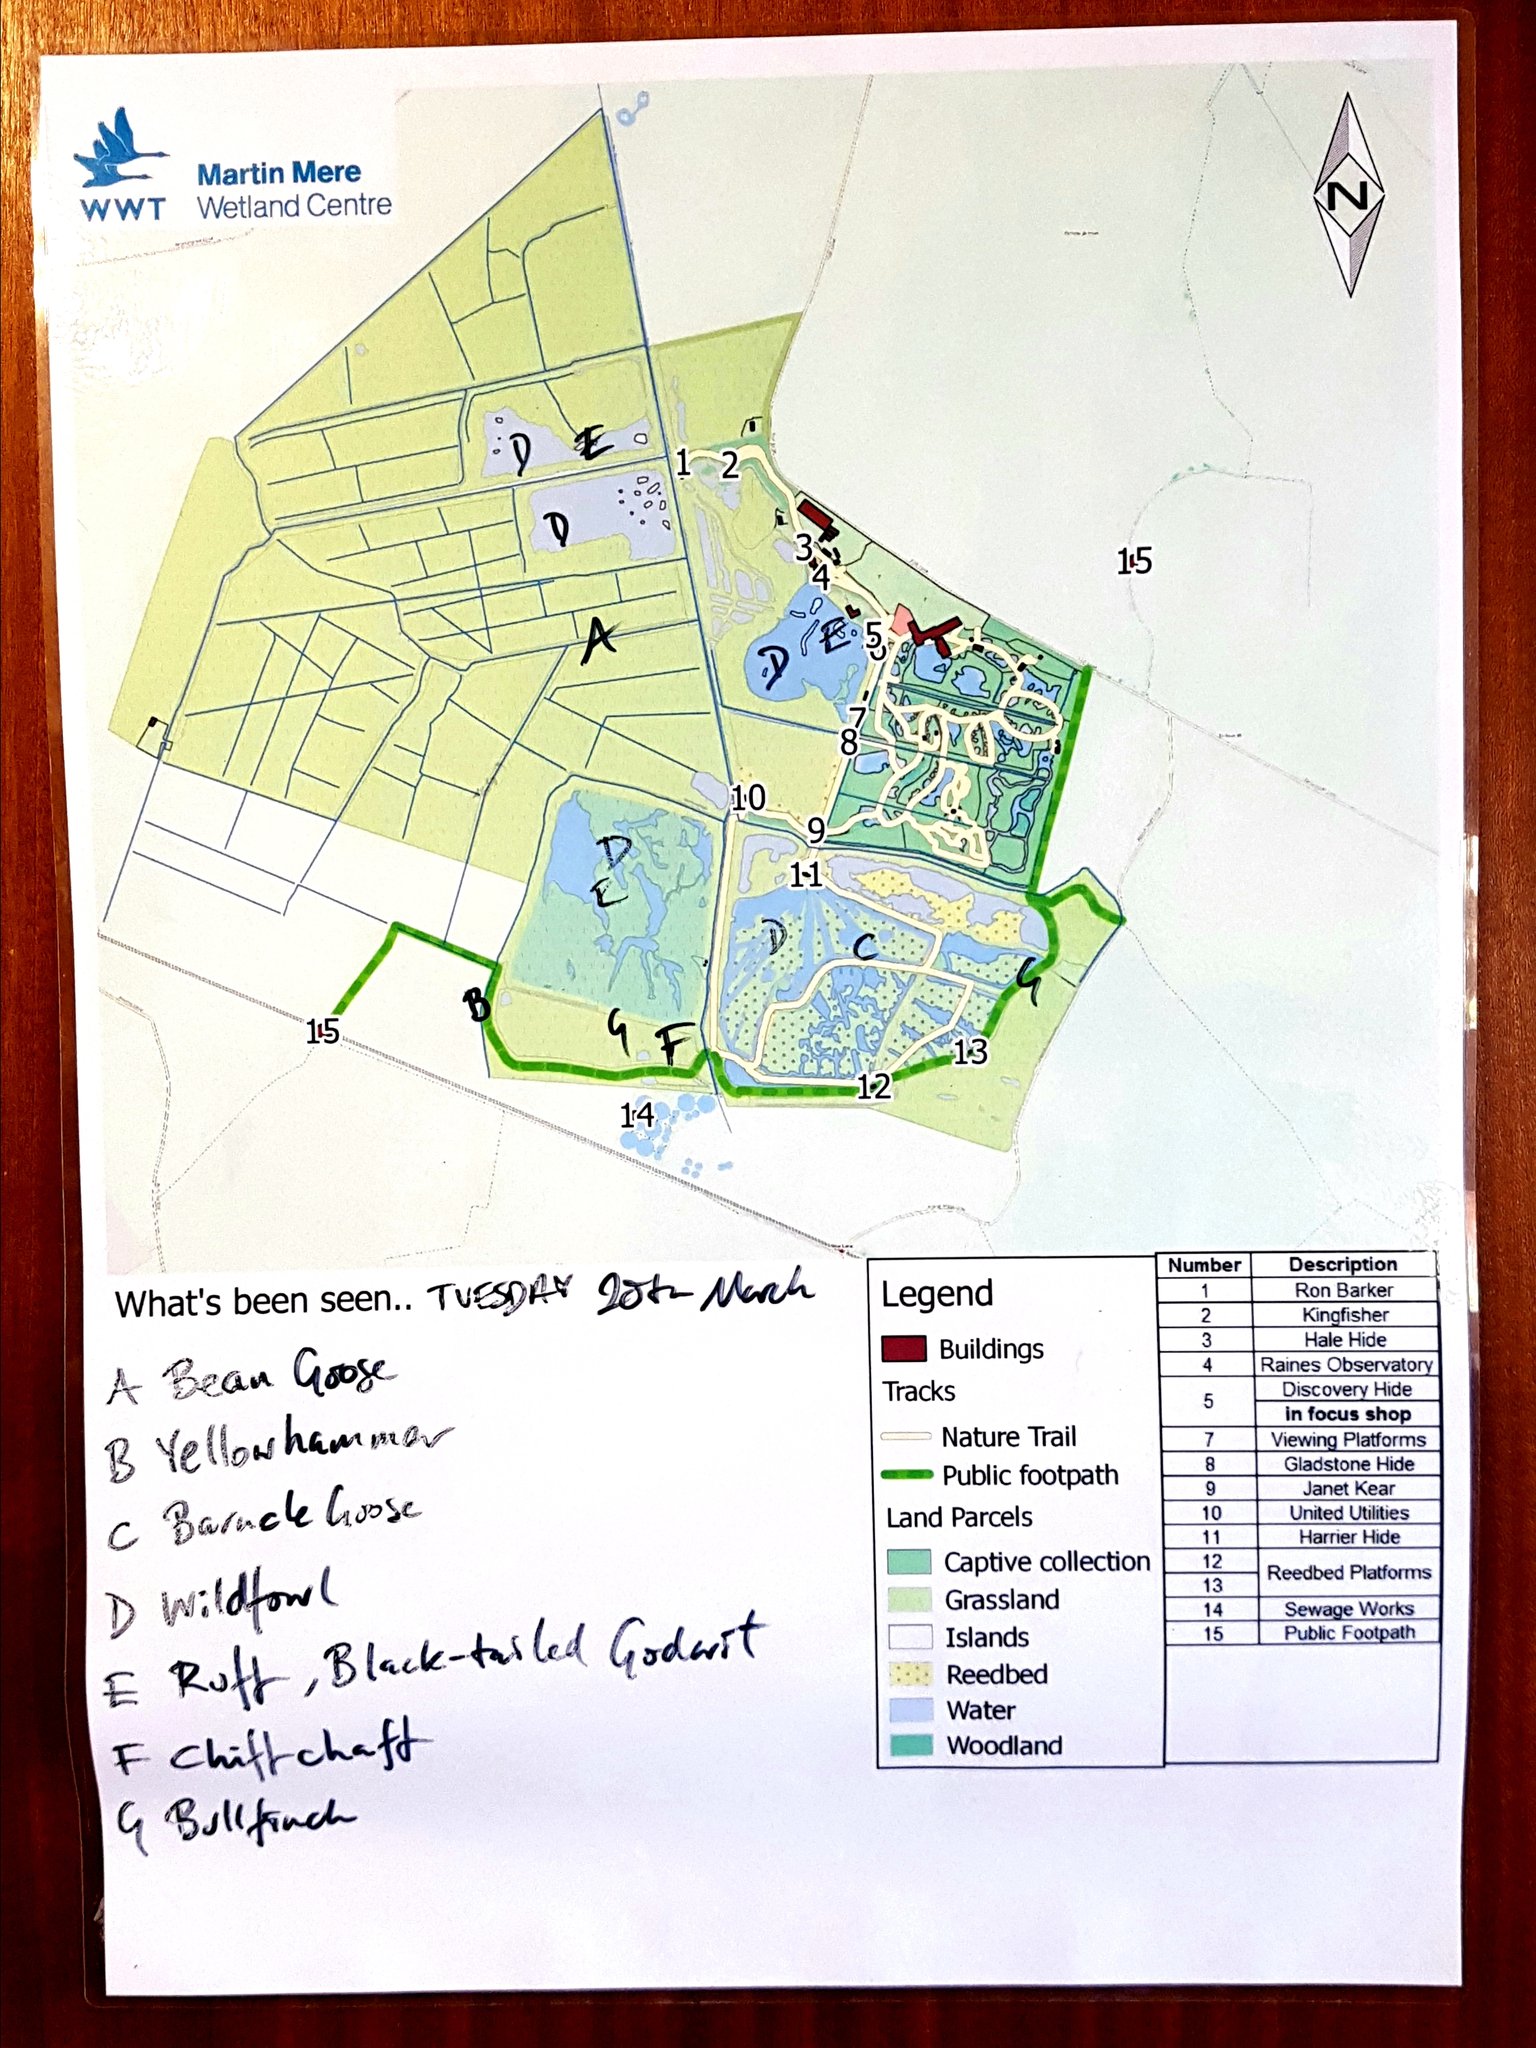 WWT
Martin Mere
Wetland Centre
N
D
E
1
2
D
3
15
4
A
E
5
6
D
7
8
10
9
D
11
E
D
C
G
B
G
F
15
13
12
14
What's been seen.. TUESDAY 20th March
A Bean Goose
B Yellowhammer
C Barnacle Goose
D Wildfowl
E Ruff, Black-tailed Godwit
F Chiffchaff
G Bullfinch
Legend
Buildings
Tracks
Nature Trail
Public footpath
Land Parcels
Captive collection
Grassland
Islands
Reedbed
Water
Woodland
Number Description
1 Ron Barker
2 Kingfisher
3 Hale Hide
4 Raines Observatory
5 Discovery Hide
in focus shop
7 Viewing Platforms
8 Gladstone Hide
9 Janet Kear
10 United Utilities
11 Harrier Hide
12 Reedbed Platforms
13
14 Sewage Works
15 Public Footpath